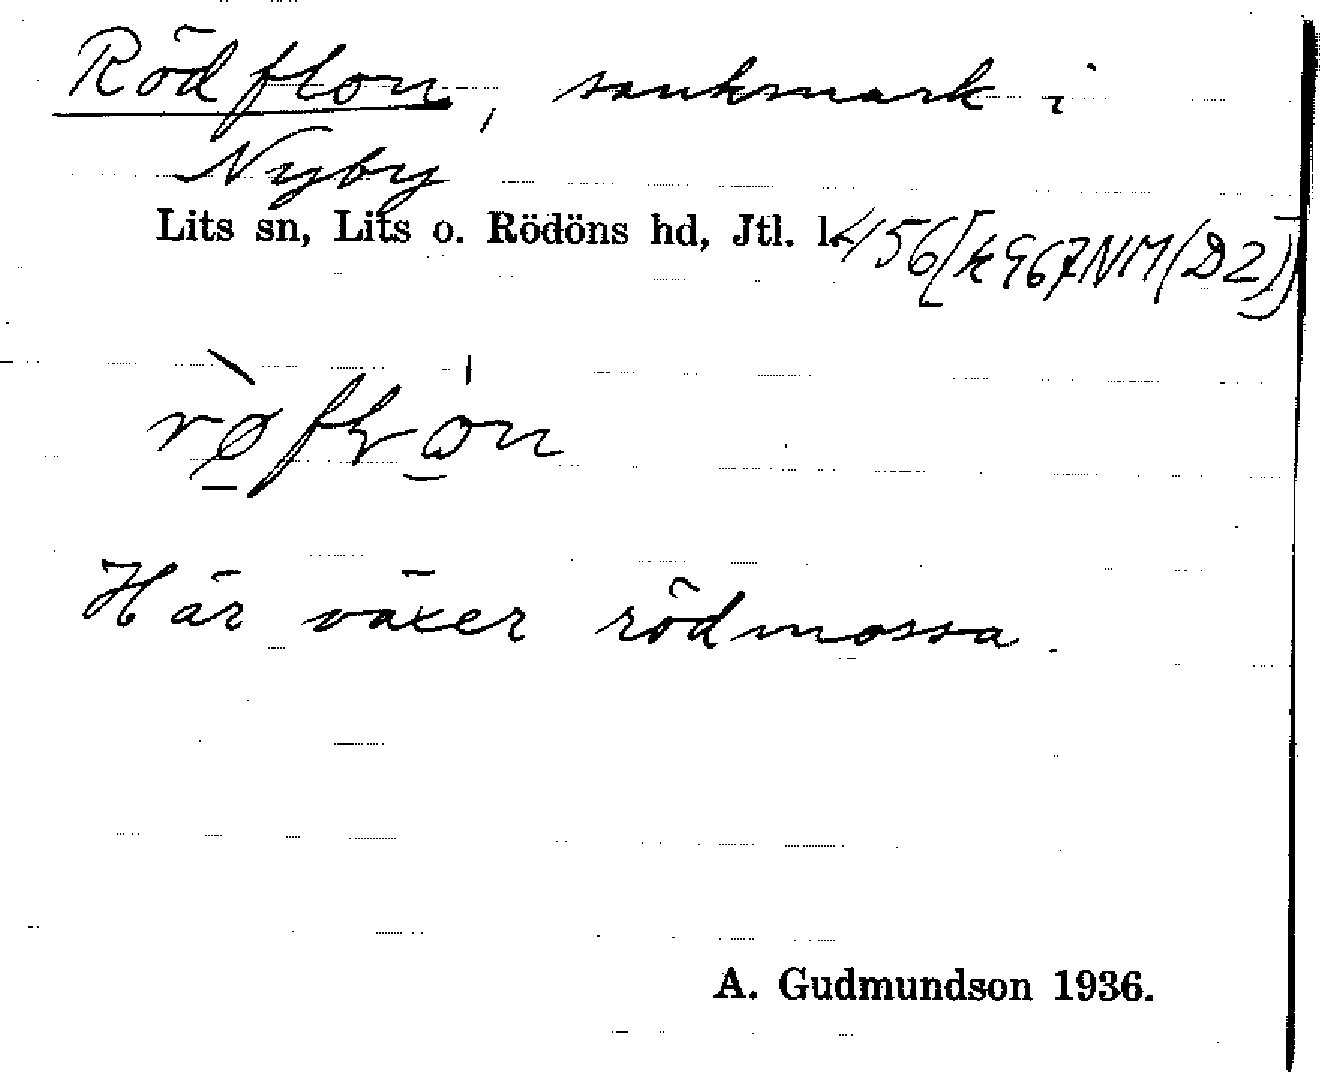 Rödflon, sankmark i
Nyby
Lits sn, Lits o. Rödöns hd, Jtl. l.
Här växer rödmossa.
A. Gudmundson 1936.